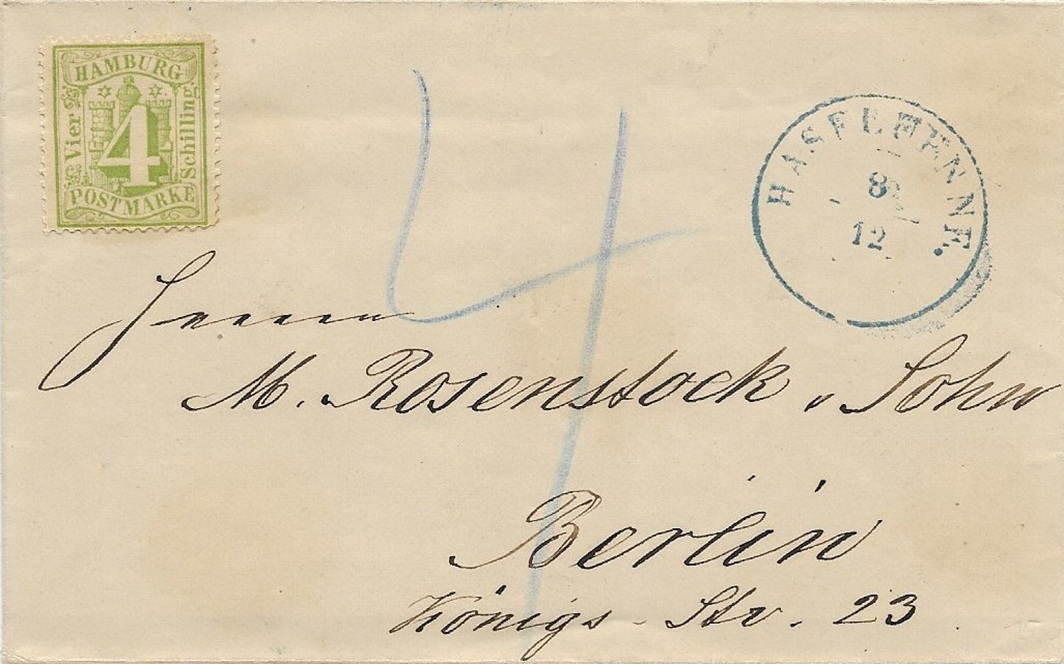 HAMBURG
Vier
4
Schilling
POSTMARKE
4
HASELUENNE.
8
12
Herrn
M. Rosenstock u. Sohn
Berlin
Königs - Str. 23